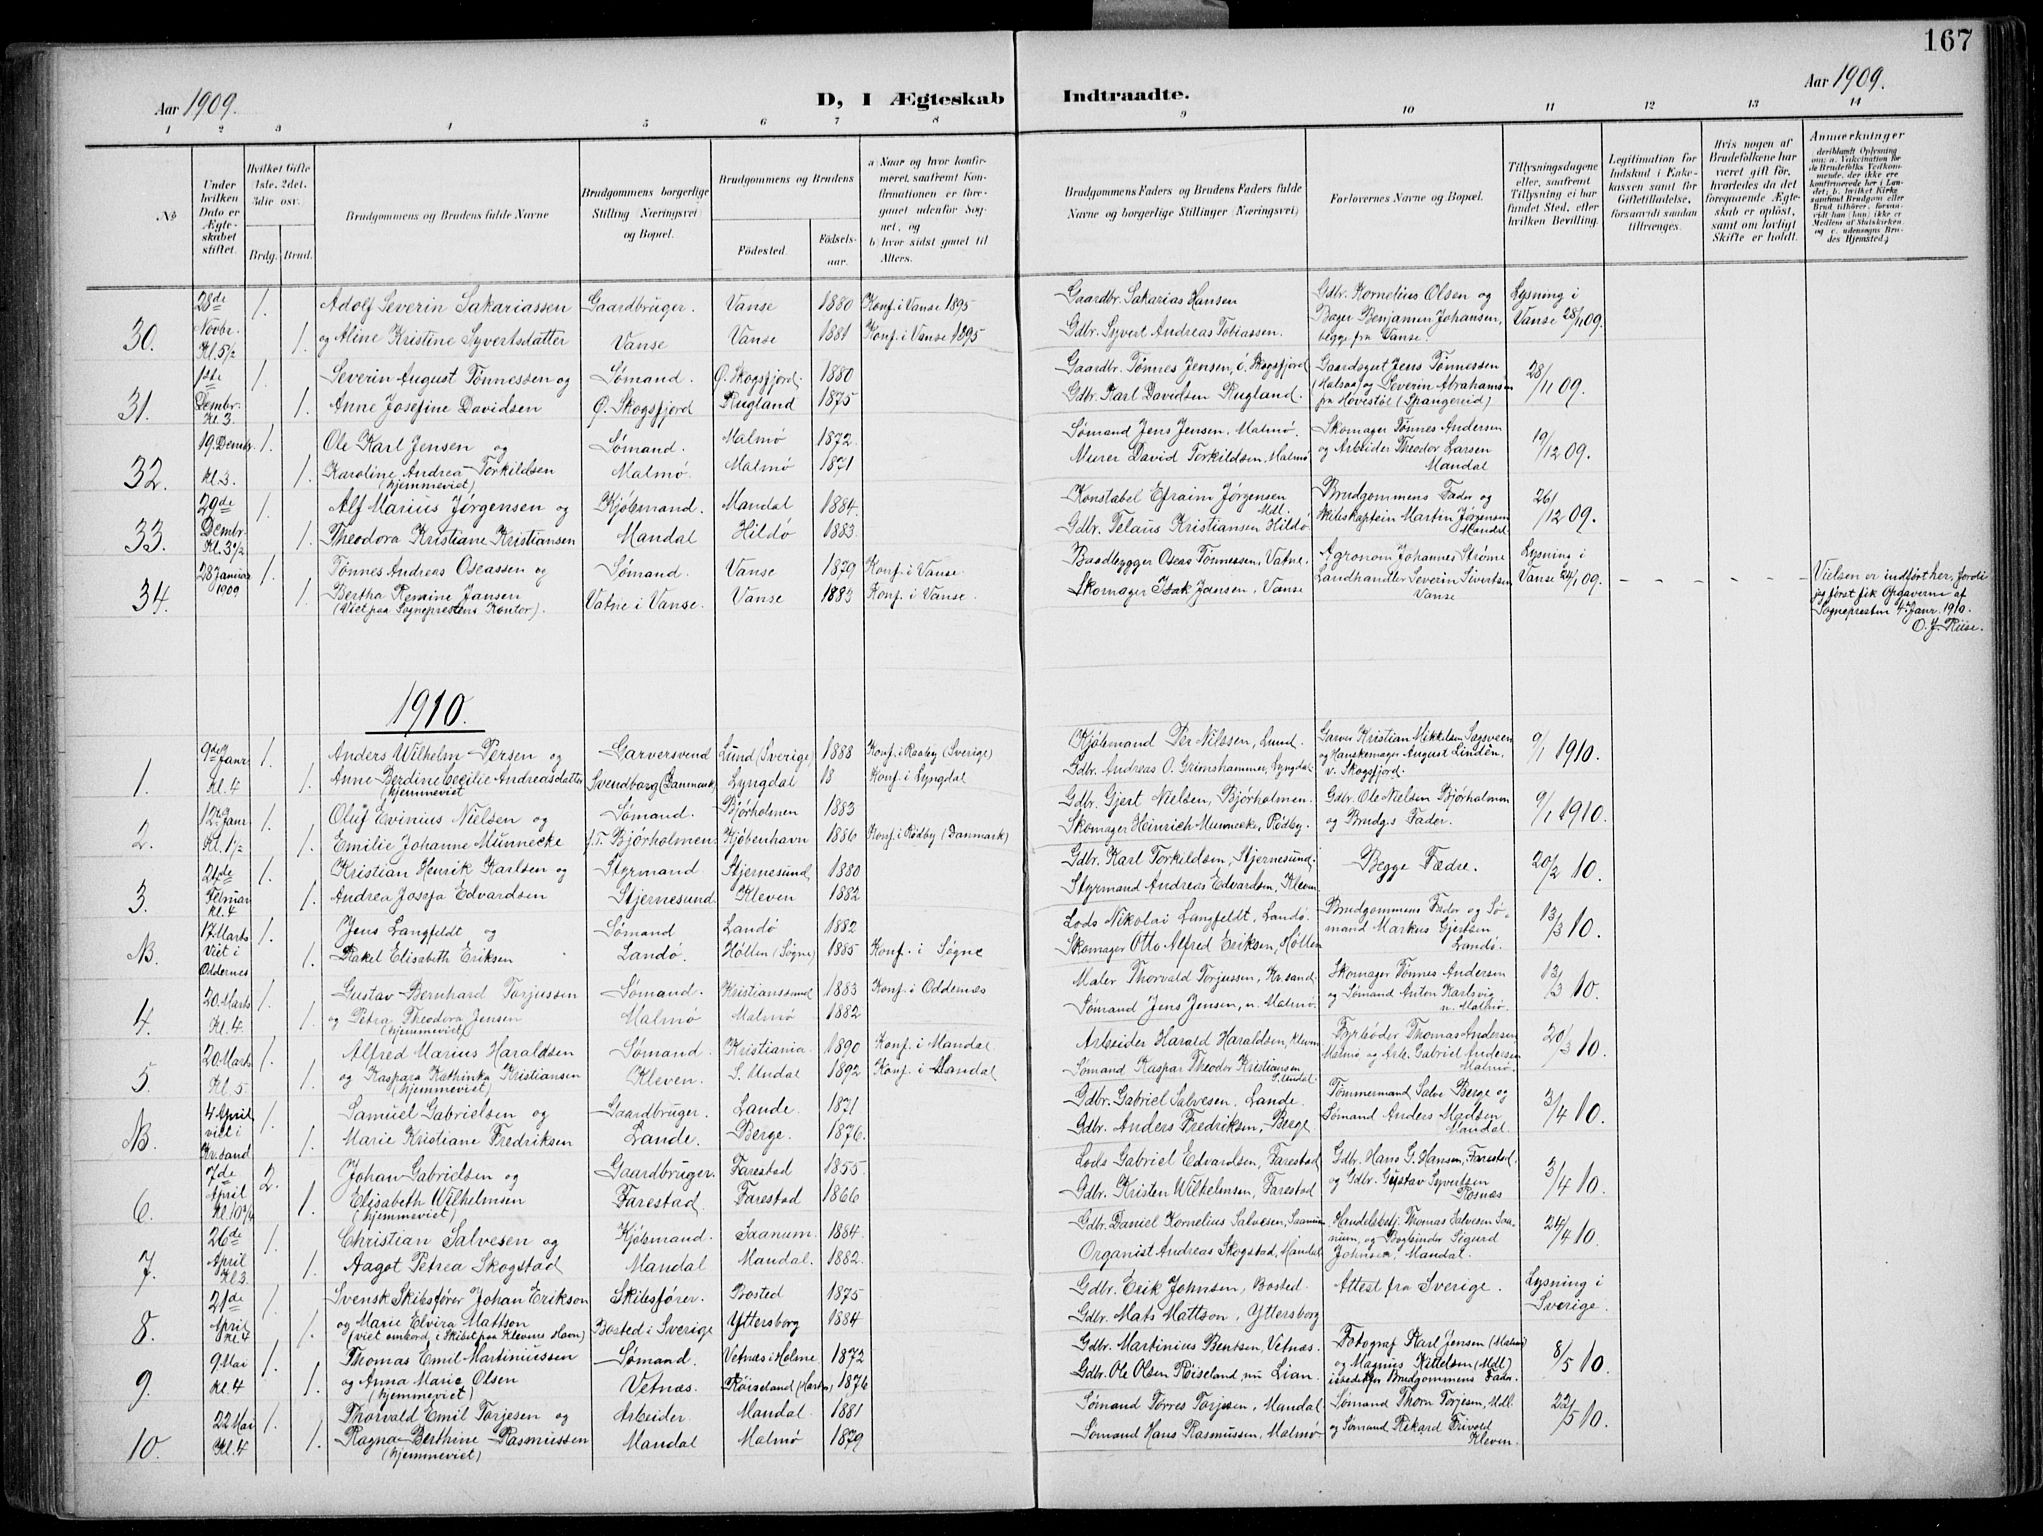 167
Aar 1909.
D, I Ægteskab Indtraadte.
Aar 1909.
1 2 3 4 5 6 7 8 9 10 11 12 13 14
No
Under hvilken Dato er Ægteskabet stiftet.
Hvilket Gifte 1ste, 2det, 3die osv.
Brdg. Brud.
Brudgommens og Brudens fulde Navne
Brudgommens borgerlige Stilling (Næringsvei) og Bopæl.
Brudgommens og Brudens
Fødested. Fødselsaar.
a) Naar og hvor konfirmeret, saafremt Konfirmationen er foregaaet udenfor Sognet, og
b) hvor sidst gaaet til Alters.
Brudgommens Faders og Brudens Faders fulde Navne og borgerlige Stillinger (Næringsvei)
Forlovernes Navne og Bopæl.
Tillysningsdagene eller, saafremt Tillysning ei har fundet Sted, efter hvilken Bevilling.
Legitimation for Indskud i Enkekassen samt for Giftetilladelse, forsaavidt saadan tiltrænges.
Hvis nogen af Brudefolkene har været gift før, hvorledes da det foregaaende Ægteskab er opløst, samt om lovligt Skifte er holdt.
Anmærkninger
30. 28de Novbr. Kl. 5½ 1. Adolf Severin Sakariassen Gaardbruger. Vanse 1880 Konf. i Vanse 1895 Gaardbr. Sakarias Hansen Gdbr. Kornelius Olsen og Lysning i
1. og Aline Kristine Syvertsdatter Vanse Vanse 1881 Konf. i Vanse 1895 Gdbr. Syvert Andreas Tobiassen. Bager Benjamin Johansen, begge fra Vanse. Vanse 28/11 09.
31. 1ste Dembr. Kl. 3 1. Severin August Tønnessen og Sømand. Ø. Skogsfjord. 1880 Gaardbr. Tønnes Jensen, Ø. Skogsfjord Gaardsgut Jens Tønnessen 28/11 09.
1. Anne Josefine Davidsen Ø. Skogsfjord Rugland 1875 Gdbr. Karl Davidsen Rugland. og Severin Abrahamsen fra Hovestøl (Spangereid)
32. 19. Dembr. Kl. 3. 1. Ole Karl Jensen og Sømand. Malmø 1872. Sømand Jens Jensen, Malmø. Skomager Tønnes Andersen 19/12 09.
1. Karoline Andrea Torkildsen (hjemmeviet) Malmø. Malmø 1871 Murer David Torkildsen, Malmø og Arbeider Theodor Larsen Mandal
33. 29de Dembr. Kl. 3½ 1. Alf Marius Jørgensen og Kjøbmand. Mandal 1884. Konstabel Efraim Jørgensen Mdl. Brudgommens Fader og 26/12 09.
1. Theodora Kristiane Kristiansen Mandal Hildø 1883. Gdbr. Telaus Kristiansen Hildø. Skibskaptein Martin Jørgensen Mandal
34. 28 Januar 1909 1. Tønnes Andreas Oseassen og Sømand. Vanse 1879 Konf. i Vanse. Baadbygger Oseas Tønnessen, Vatne. Agronom Johannes Strømme Lysning i
1. Bertha Regine Jansen (Viet paa Sogneprestens Kontor). Vatne i Vanse. Vanse 1883 Konf. i Vanse. Skomager Isak Jansen, Vanse Landhandler Severin Sivertsen Vanse Vanse 24/1 09. - - - -
Vielsen er indført her, fordi jeg først fik Opgaverne af Sognepresten 4. Janr. 1910. O. J. Riise.
1910.
1. 9de Janr. Kl. 4 1. Anders Wilhelm Persen og Garversvend Lund (Sverige) 1888 Konf. i Raaby (Sverige) Kjøbmand Per Nilssen, Lund. Garver Kristian Mikkelsen Sagsveen 9/1 1910.
1. Anne Berdine Cecilie Andreasdatter (hjemmeviet Svendborg (Danmark) Lyngdal 18 Konf. i Lyngdal Gdbr. Andreas O. Grimshammer, Lyngdal og Hanskemager August Lindèn, v. Skogsfjord.
2. 12 Janr. Kl. 1½ 1. Oluf Evinius Nielsen og Sømand. Bjørholmen 1883 Gdbr. Gjert Nielsen, Bjørholmen. Gdbr. Ole Nielsen Bjørholmen 9/1 1910.
1. Emilie Johanne Münnecke f.T. Bjørholmen Kjøbenhavn 1886 Konf. i Rødby (Danmark) Skomager Heinrich Münnecke, Rødby. og Brudgs Fader.
3. 21de Februar Kl. 4 1. Kristian Henrik Karlsen og Styrmand Stjernesund 1880 Gdbr. Karl Torkildsen, Stjernesund. Begge Fædre. 20/2 10.
1. Andrea Josefa Edvardsen Stjernesund. Kleven 1882 Styrmand Andreas Edvardsen, Kleven
NB. 17 Marts Viet i Oddernes 1. Jens Langfeldt og Sømand Landø 1882 Lods Nikolai Langfeldt, Landø. Brudgommens Fader og Sømand Markus Gjertsen Landø. 13/3 10.
1. Rakel Elisabeth Eriksen Landø. Höllen (Søgne) 1885 Konf. i Søgne Skomager Otto Alfred Eriksen, Höllen
4. 20. Marts Kl. 4 1. Gustav Bernhard Torjussen Sømand. Kristianssand 1883 Konf. i Oddernes Maler Thorvald Torjussen, Kr.sand Skomager Tønnes Andersen 13/3 10.
1. og Petra Theodora Jensen (hjemmeviet) Malmø Malmø 1882 Sømand Jens Jensen, n. Malmø. og Sømand Anton Karlsvig n. Malmø.
5. 20. Marts Kl. 5. 1. Alfred Marius Haraldsen Sømand. Kristiania. 1890 Konf. i Mandal. Arbeider Harald Haraldsen, Kleven Fyrbøder Thomas Andersen 20/3 10.
1. og Kaspara Kathinka Kristiansen (hjemmeviet) Kleven. S. Undal 1892 Konf. i Mandal Sømand Kaspar Theodor Kristiansen S. Undal. Malmø og Arb. Gabriel Andersen Malmø.
NB. 4 April viet i Kr.sand 1. Samuel Gabrielsen og Gaardbruger. Lande. 1871 Gdbr. Gabriel Salvesen, Lande. Tømmermand Salve Berge og 3/4 10.
1. Marie Kristiane Fredriksen Lande. Berge. 1876. Gdbr. Anders Fredriksen, Berge Sømand Anders Madsen Mandal.
6. 7de April Kl. 10¾ 2. Johan Gabrielsen og Gaardbruger. Farestad 1855. Lods Gabriel Edvardsen, Farestad Gdbr. Hans G. Hansen, Farestad. 3/4 10.
1. Elisabeth Wilhelmsen (hjemmeviet) Farestad. Farestad 1866 Gdbr. Kristen Wilhelmsen, Farestad og Gdbr. Gustav Syvertsen Rosnæs
7. 26de April Kl. 3. 1. Christian Salvesen og Kjøbmand. Saanum. 1884. Gdbr. Daniel Kornelius Salvesen, Saanum Handelsbetj. Thomas Salvesen Saanum, og Bogbinder Sigurd Johnsen, Mandal. 24/4 10.
1. Aagot Petrea Skogstad Mandal Mandal. 1882. Organist Andreas Skogstad, Mandal
8. 21de April Kl. 4 1. Svensk Skibsfører Johan Erikson Skibsfører. Bosted 1875 Gdbr. Erik Johnsen, Bosted. Attest fra Sverige. Lysning i Sverige.
1. og Marie Elvira Mattson (viet ombord i Skibet paa Klevens Havn) Bosted i Sverige Yttersborg 1884 Gdbr. Mats Mattson, Yttersborg
9. 9 Mai Kl. 4 1. Thomas Emil Martiniussen Sømand. Vetnæs i Holme 1872 Gdbr. Martinius Bentsen, Vetnæs. Fotograf Karl Jensen (Malmø) 8/5 10.
1. og Anna Marie Olsen (hjemmeviet) Vetnæs. Röiseland 1876 Gdbr. Ole Olsen Röiseland nu Lian. og Magnus Kittelsen (Mdl) istedetfor Brudgommens Fader.
10. 22 Mai Kl. 4 1. Thorvald Emil Torjesen og Arbeider Mandal. 1881 Sømand Tørres Torjesen, Mandal Sømand Thorn Torjesen, Mdl. 22/5 10.
1. Ragna Berthine Rasmussen (hjemmeviet) Mandal Malmø 1879 Sømand Hans Rasmussen, Malmø og Sømand Rikard Frivold Kleven.